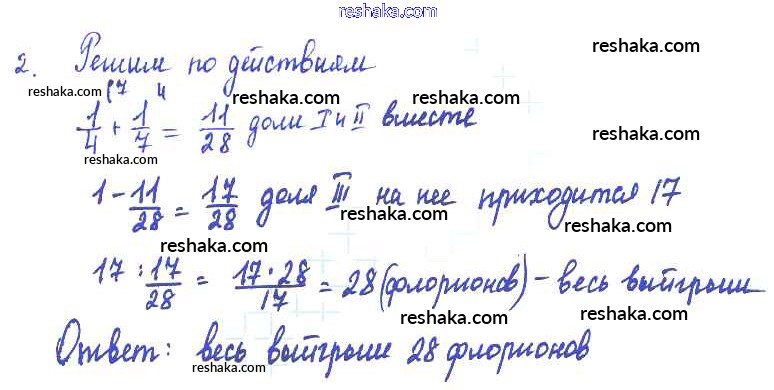 reshaka.com
2. Решим по действиям reshaka.com
reshaka.com 7 4 reshaka.com reshaka.com
1/4 + 1/7 = 11/28 доли I и II вместе reshaka.com
reshaka.com
1 - 11/28 = 17/28 доля III на нее приходится 17
reshaka.com reshaka.com
17 : 17/28 = 17·28/17 = 28 (флорионов) - весь выйгрыш
reshaka.com reshaka.com
Ответ: весь выйгрыш 28 флорионов
reshaka.com reshaka.com